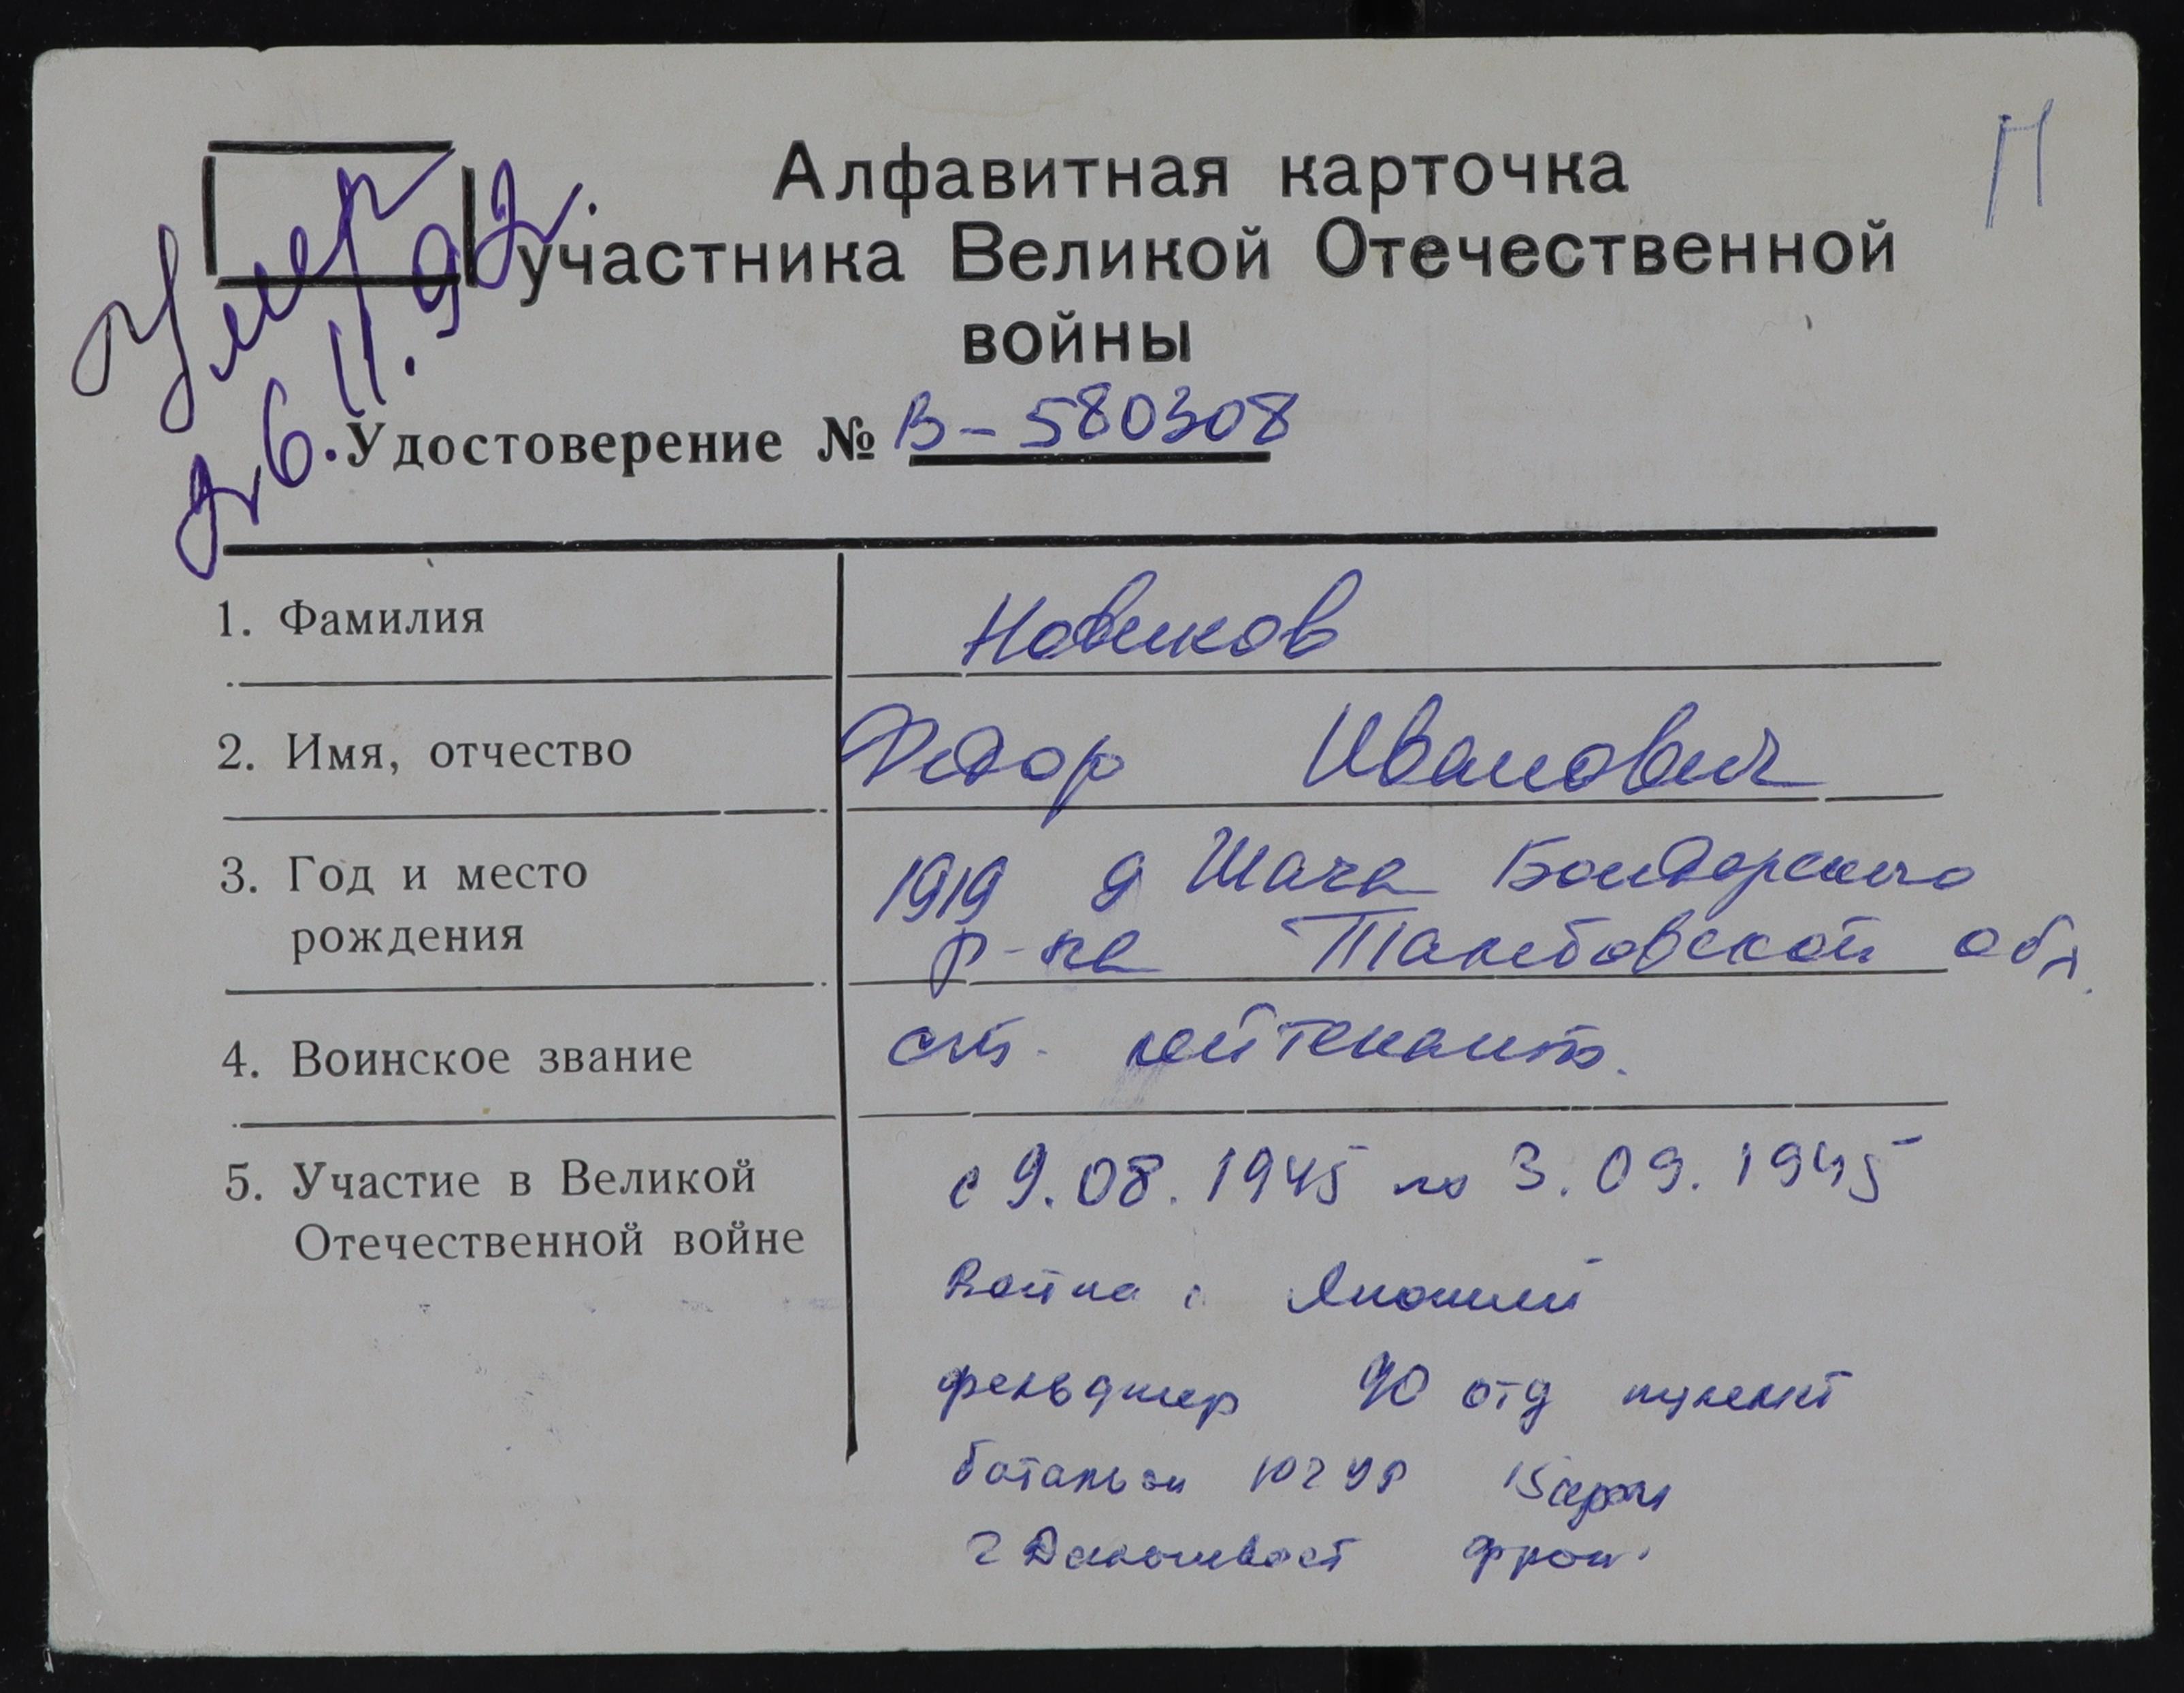 Н
Умер
26.11.92г.
Алфавитная карточка
участника Великой Отечественной
войны
Удостоверение № В-580308
1. Фамилия Новиков
2. Имя, отчество Федор Иванович
3. Год и место 1919 д Шача Бондарского
рождения р-на Тамбовской обл.
4. Воинское звание ст. лейтенант.
5. Участие в Великой с 9.08.1945 по 3.09.1945
Отечественной войне
Война с Японией
фельдшер 40 отд пулемет
батальон 102 УР 15 арм
2 Дальневост фрон.